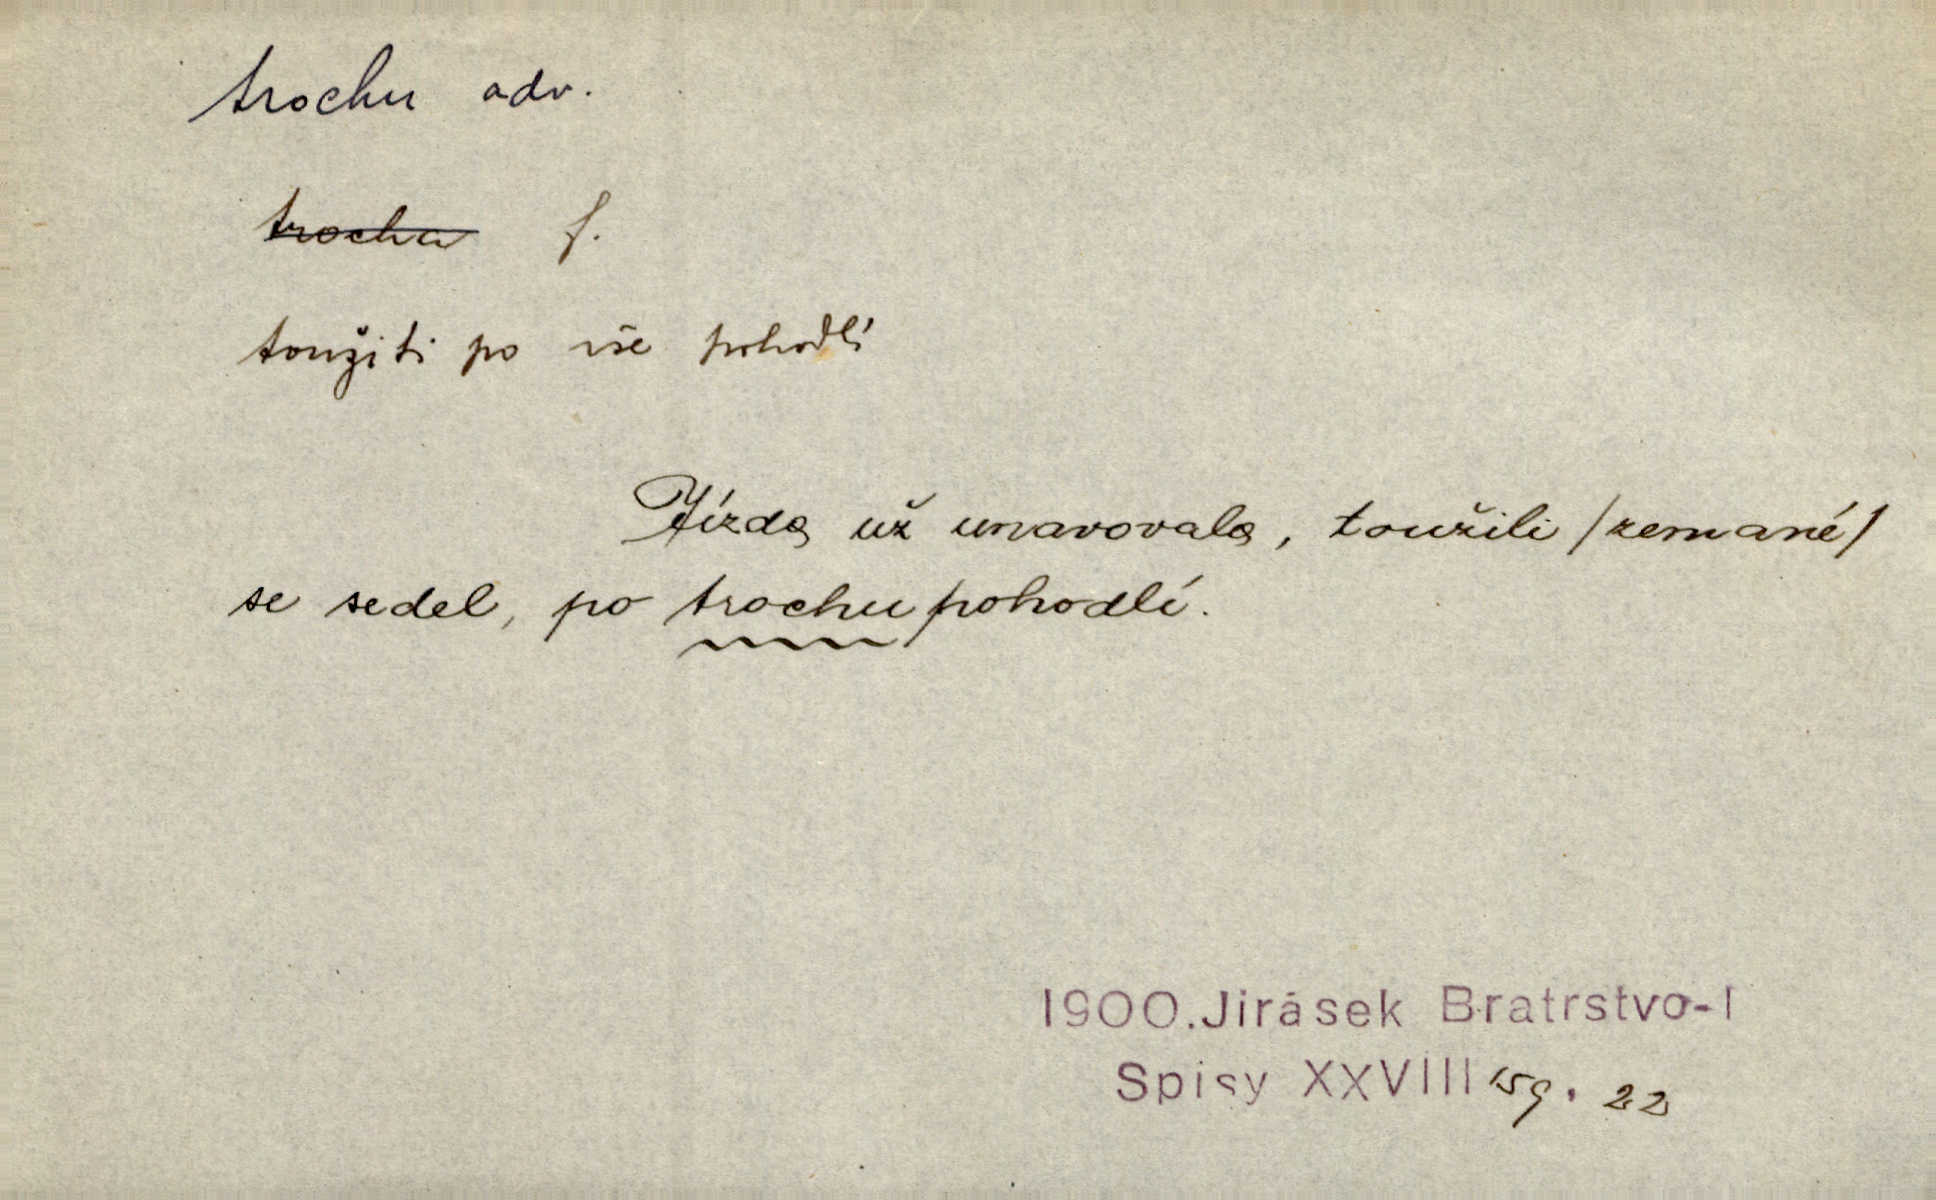 trochu adv.
trocha f.
toužiti po vše pohodlí
Jízda už unavovala, toužili /zemané/
se sedel, po trochu pohodlí.
1900. Jirásek Bratrstvo-I
Spisy XXVIII 159. 22